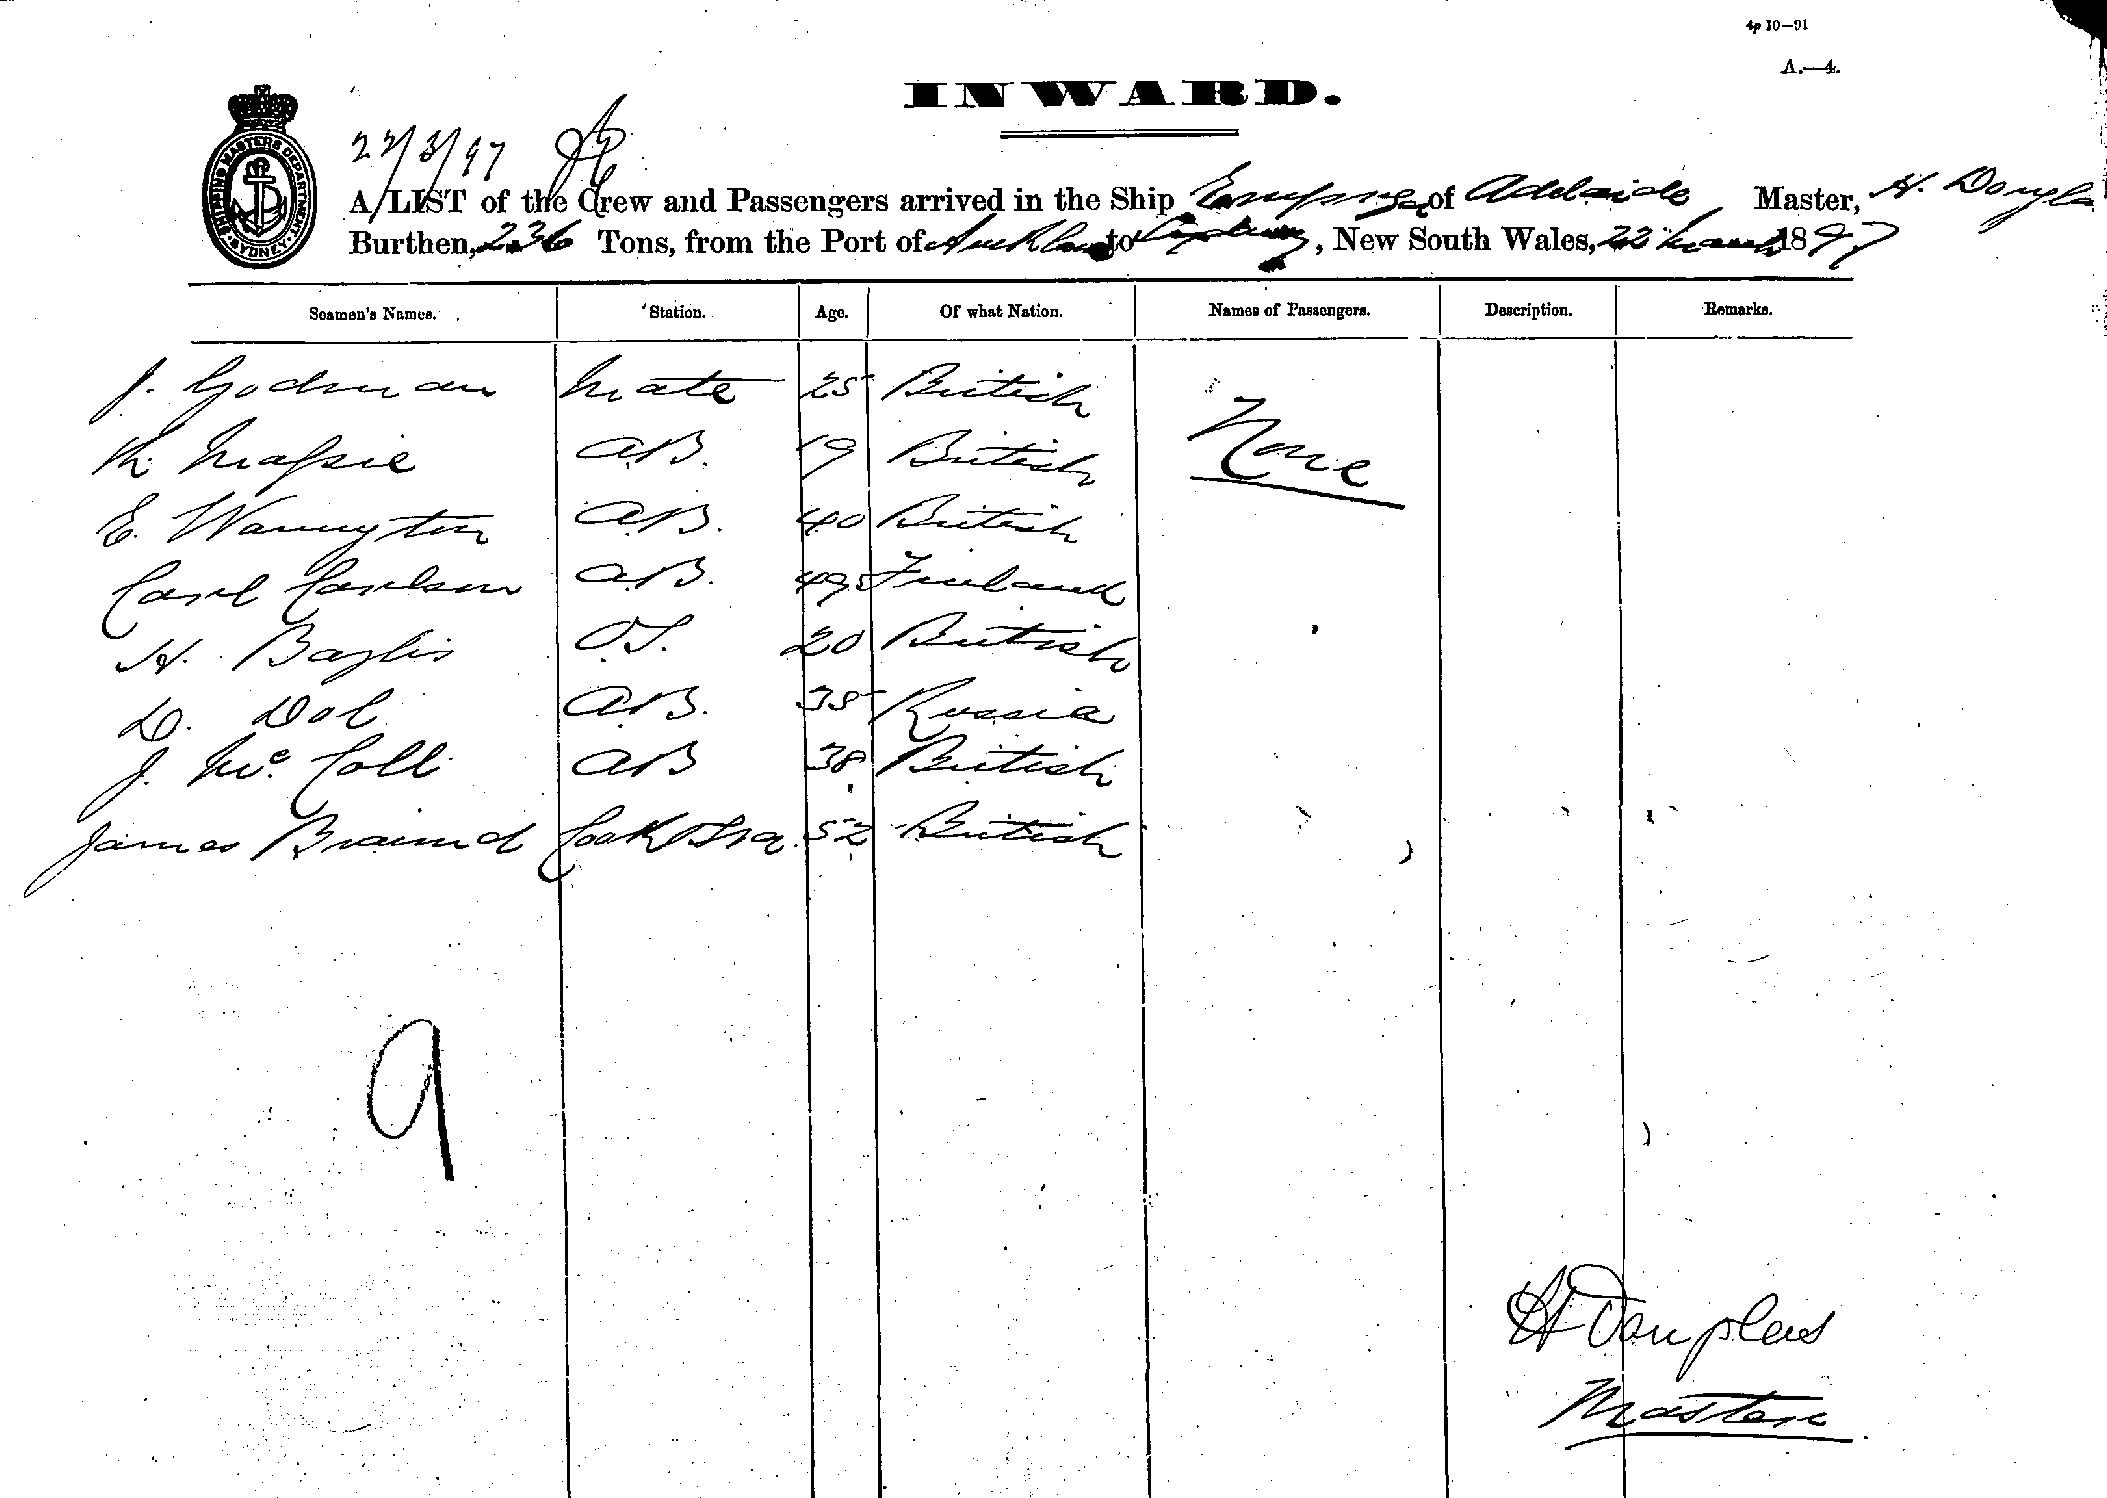 4p 10—91
A.—4.
INWARD.
SHIPPING MASTERS DEPARTMENT. SYDNEY.
22/3/97
A LIST of the Crew and Passengers arrived in the Ship of Adelaide Master, H. Dougla
Burthen, 236 Tons, from the Port of Auckland to Sydney, New South Wales, 22 March 1897
Seamen's Names. Station. Age. Of what Nation. Names of Passengers. Description. Remarks.
J. Godman Mate 25 British None
A.B. 19 British
E. Warrington A.B. 40 British
Carl Carlson A.B. 49 Finland
H. Baylis O.S. 20 British
D. Dol A.B. 38 Russia
J. Mc. Coll AB 38 British
James Braund Cook 52 British
9
H Douglas
Master